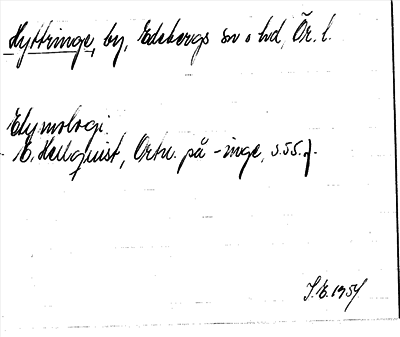 Hyttringe, by, Edsbergs sn o hd, Ör. l.
Etymologi:
E. Hellquist, Ortn. på -inge, s. 55. f.
I.E. 1954